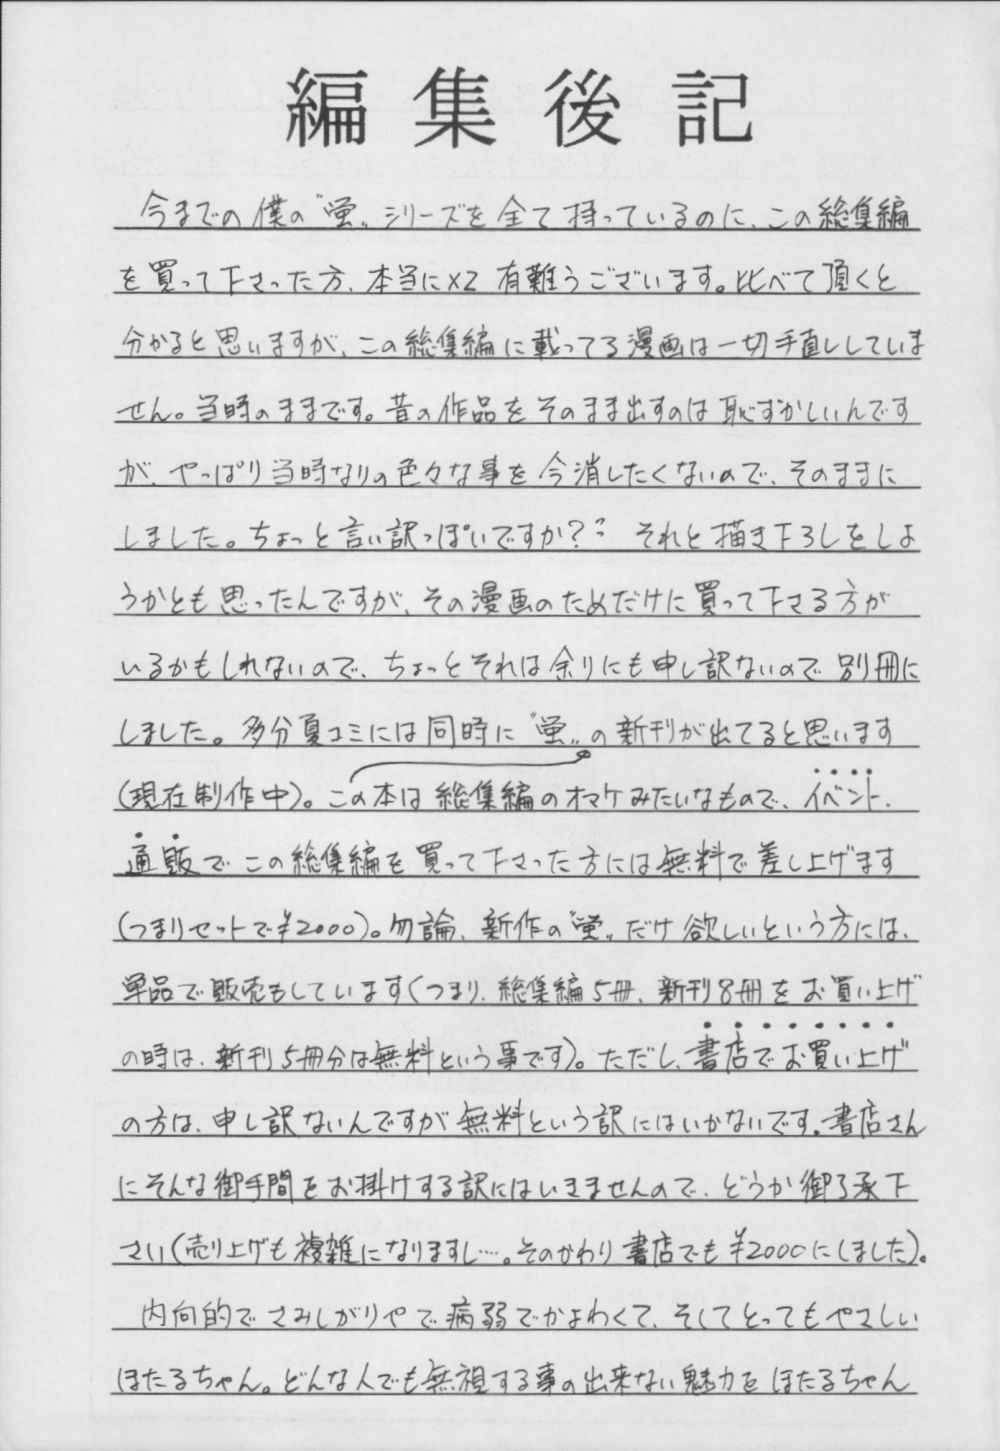 編集後記
今までの僕の〝蛍〟シリーズを全て持っているのに、この総集編
を買って下さった方、本当に×2 有難うございます。比べて頂くと
分かると思いますが、この総集編に載ってる漫画は一切手直ししていま
せん。当時のままです。昔の作品をそのまま出すのは恥ずかしいんです
が、やっぱり当時なりの色々な事を今消したくないので、そのままに
しました。ちょっと言い訳っぽいですか？ それと描き下ろしをしよ
うかとも思ったんですが、その漫画のためだけに買って下さる方が
いるかもしれないので、ちょっとそれは余りにも申し訳ないので別冊に
しました。多分夏コミには同時に〝蛍〟の新刊が出てると思います
(現在制作中)。この本は総集編のオマケみたいなもので、イベント、
通販でこの総集編を買って下さった方には無料で差し上げます
(つまりセットで¥2000)。勿論、新作の〝蛍〟だけ欲しいという方には、
単品で販売もしています(つまり、総集編5冊、新刊8冊をお買い上げ
の時は、新刊5冊分は無料という事です)。ただし、書店でお買い上げ
の方は、申し訳ないんですが無料という訳にはいかないです。書店さん
にそんな御手間をお掛けする訳にはいきませんので、どうか御了承下
さい(売り上げも複雑になりますし…。そのかわり書店でも¥2000にしました)。
内向的でさみしがりやで病弱でかよわくて、そしてとってもやさしい
ほたるちゃん。どんな人でも無視する事の出来ない魅力をほたるちゃん